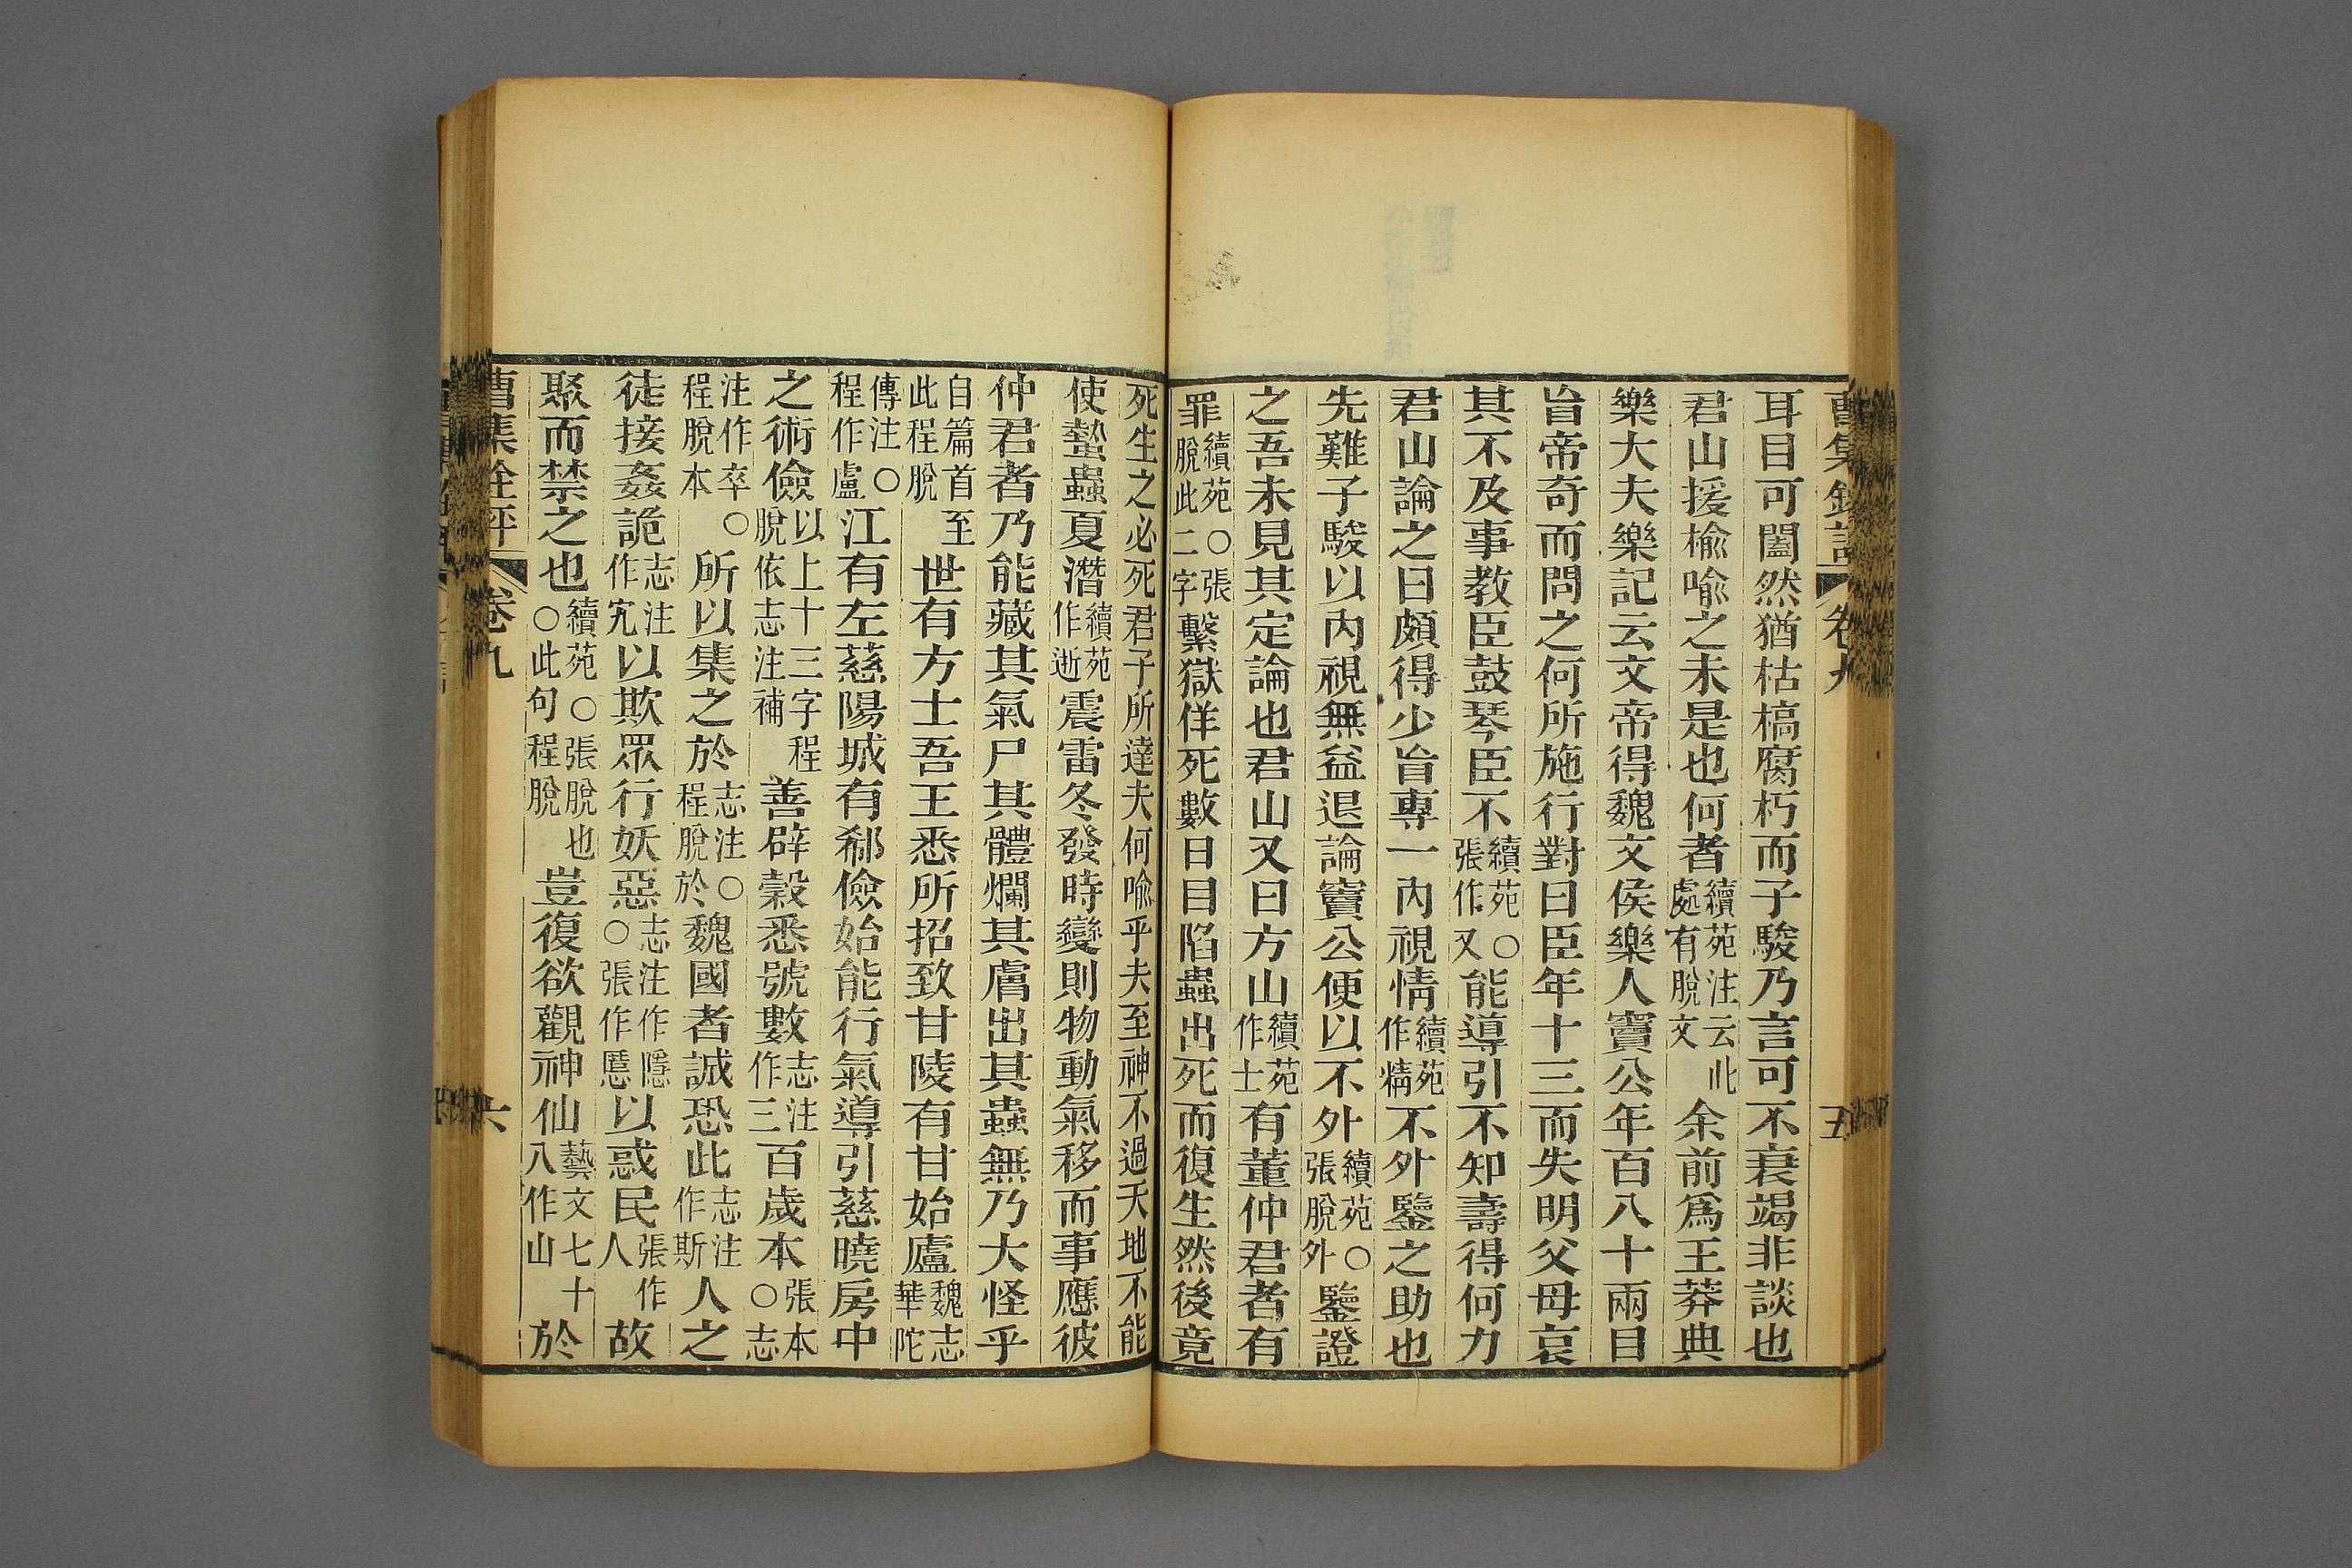 曹集銓評 卷九 五
耳目可闔然猶枯槁腐朽而子駿乃言可不衰竭非談也
君山援榆喻之未是也何者續苑注云此處有脫文余前爲王莽典
樂大夫樂記云文帝得魏文侯樂人竇公年百八十兩目
盲帝奇而問之何所施行對曰臣年十三而失明父母哀
其不及事教臣鼓琴臣不續苑○張作又能導引不知壽得何力
君山論之曰頗得少盲專一內視情續苑作精不外鑒之助也
先難子駿以內視無益退論竇公便以不外續苑○張脫外鑒證
之吾未見其定論也君山又曰方山續苑作士有董仲君者有
罪續苑○張脫此二字繫獄佯死數日目陷蟲出死而復生然後竟
死生之必死君子所達夫何喻乎夫至神不過天地不能
使蟄蟲夏潛續苑作逝震雷冬發時變則物動氣移而事應彼
仲君者乃能藏其氣尸其體爛其膚出其蟲無乃大怪乎
自篇首至此程脫世有方士吾王悉所招致甘陵有甘始廬魏志華陀
傳注○程作盧江有左慈陽城有郗儉始能行氣導引慈曉房中
之術儉以上十三字程脫依志注補善辟穀悉號數志注作三百歲本張本○志
注作卒○程脫本所以集之於志注○程脫於魏國者誠恐此志注作斯人之
徒接姦詭志注作宄以欺眾行妖惡志注作隱○張作慝以惑民張作人故
聚而禁之也續苑○張脫也○此句程脫豈復欲觀神仙藝文七十八作山於
曹集銓評 卷九 六